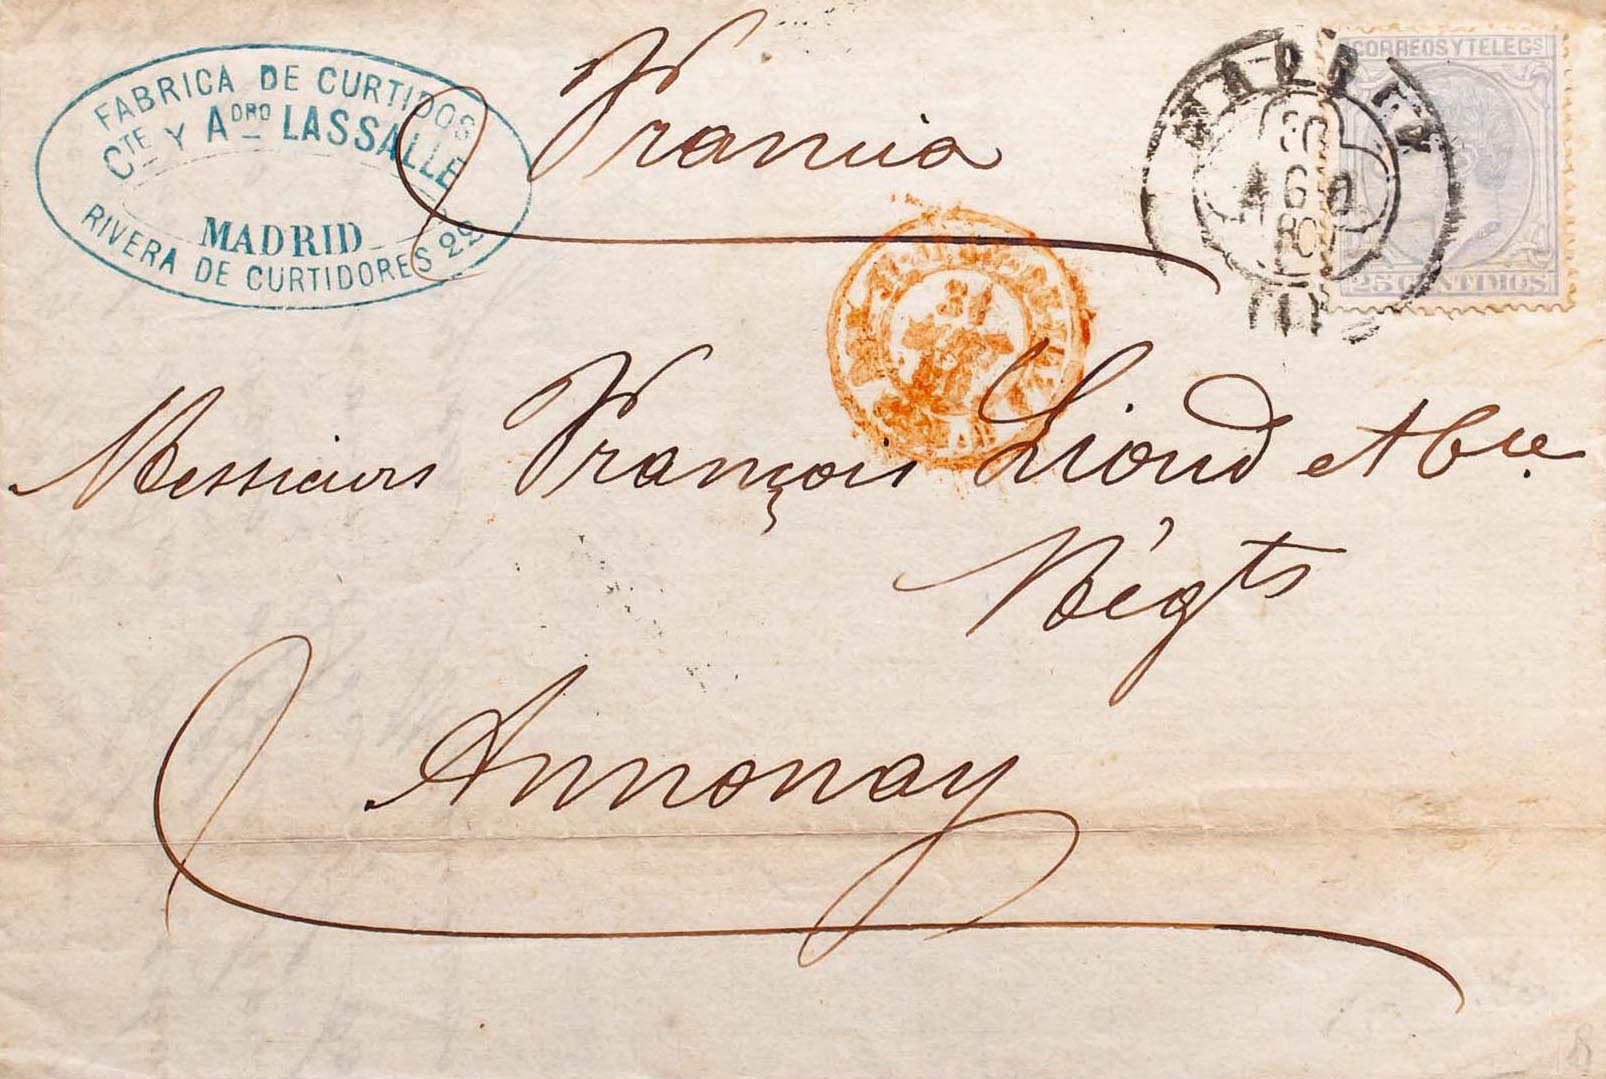 FABRICA DE CURTIDOS
CTE Y ADRO LASSALLE
MADRID
RIVERA DE CURTIDORES 29
Francia
MADRID
30
AGO
80
CORREOS Y TELEGS
25 CENTIMOS
31
Messieurs François Lioud et Cie
Négts
Annonay